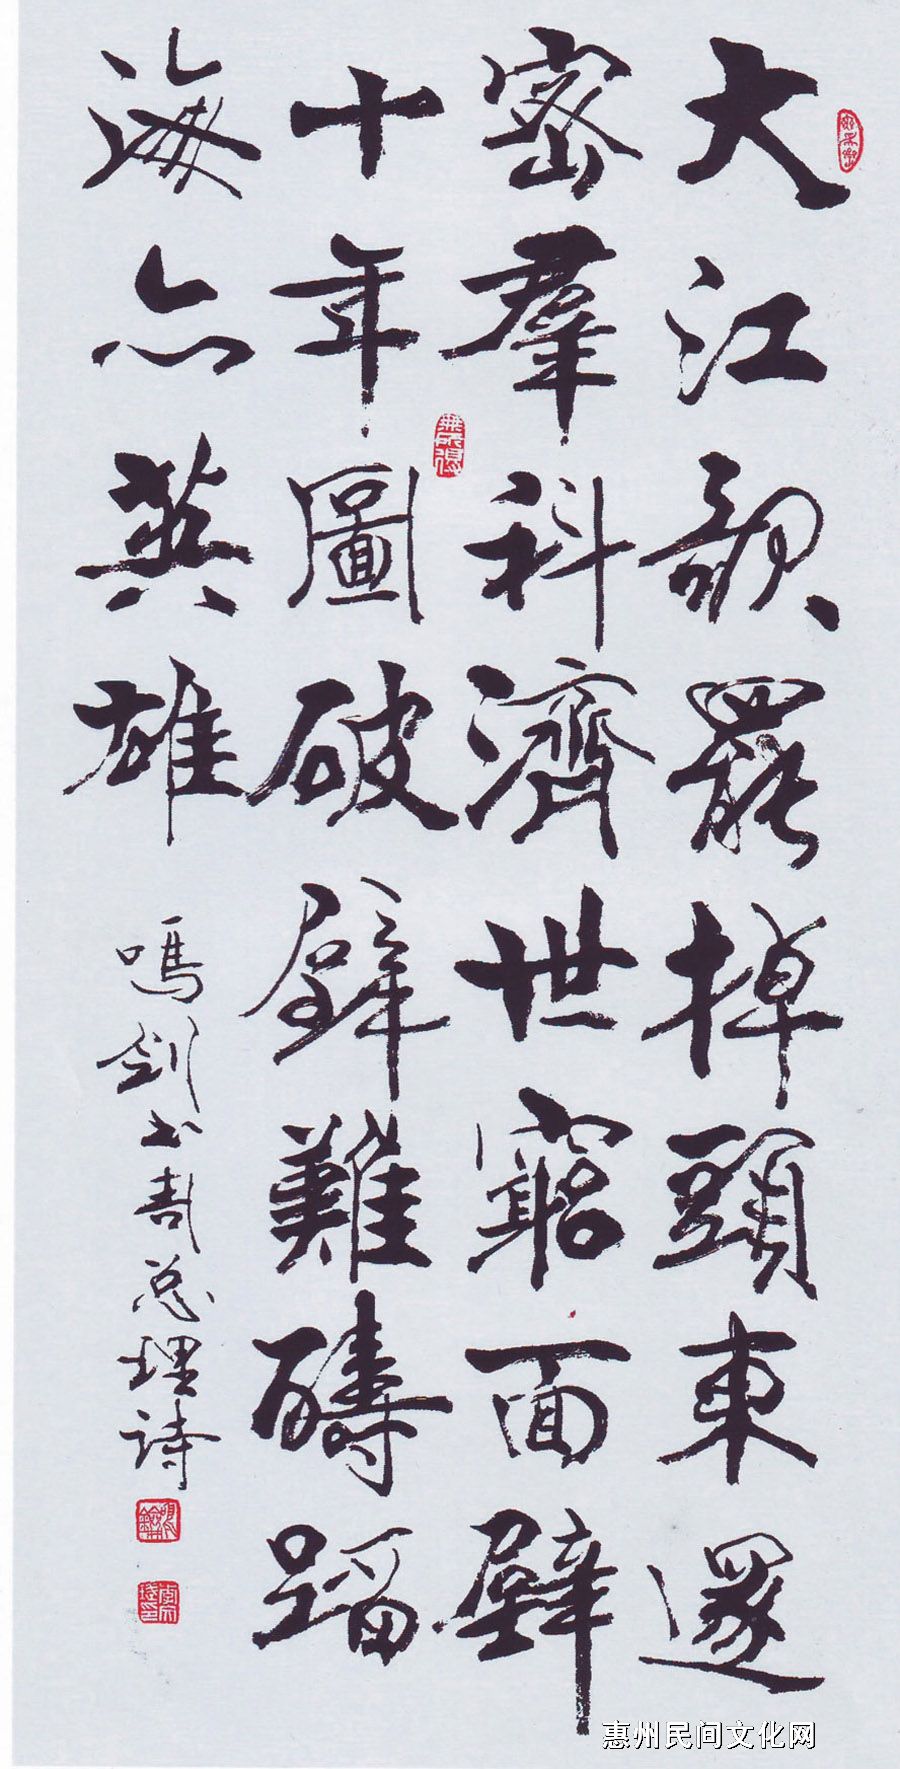 大江歌罷掉頭東邃
密羣科濟世窮面壁
十年圖破壁難醻蹈
海亦英雄
鳴劍书周总理詩
惠州民间文化网